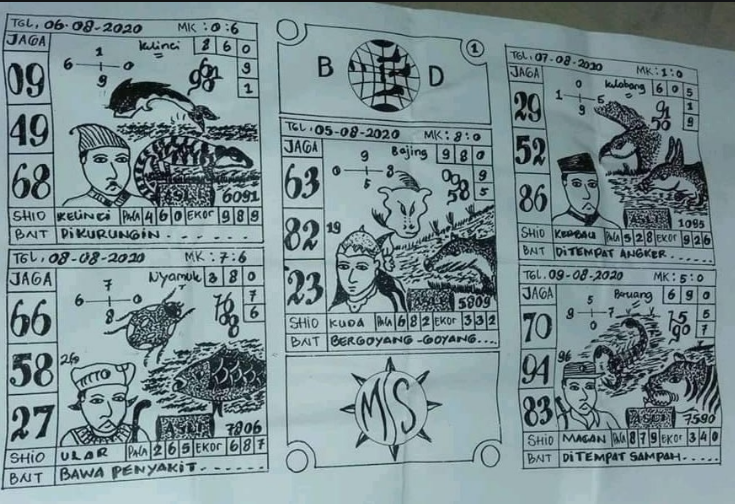 TGL, 06-08-2020 MK : 0 : 6
JAGA
09
49
68
1
6 0
9
Kelinci
8 6 0
9
1
ASLI
6091
SHIO KELINCI PALA 4 6 0 EKOR 9 8 9
BNT DIKURUNGIN
TGL, 08-08-2020 MK : 7 : 6
JAGA
66
58
27
7
6 0
8
Nyamuk
3 8 0
7
6
26
ASLI
7806
SHIO ULAR PALA 2 6 5 EKOR 6 8 7
BNT BAWA PENYAKIT
B D
1
TGL, 05-08-2020 MK : 8 : 0
JAGA
63
82
23
9
0 8
5
Bajing
9 8 0
9
5
19
5809
SHIO KUDA PALA 6 8 2 EKOR 3 3 2
BNT BERGOYANG-GOYANG
MS
TGL, 07-08-2020 MK : 1 : 0
JAGA
29
52
86
0
1 5
9
6 0 5
1
9
ASLI
1095
SHIO KERBAU PALA 5 2 8 EKOR 9 2 6
BNT DITEMPAT ANGKER
TGL, 09-08-2020 MK : 5 : 0
JAGA
70
94
83
5
9 7
0
Beruang
6 9 0
5
7
96
ASLI
7590
SHIO MACAN PALA 8 7 9 EKOR 3 4 0
BNT DITEMPAT SAMPAH